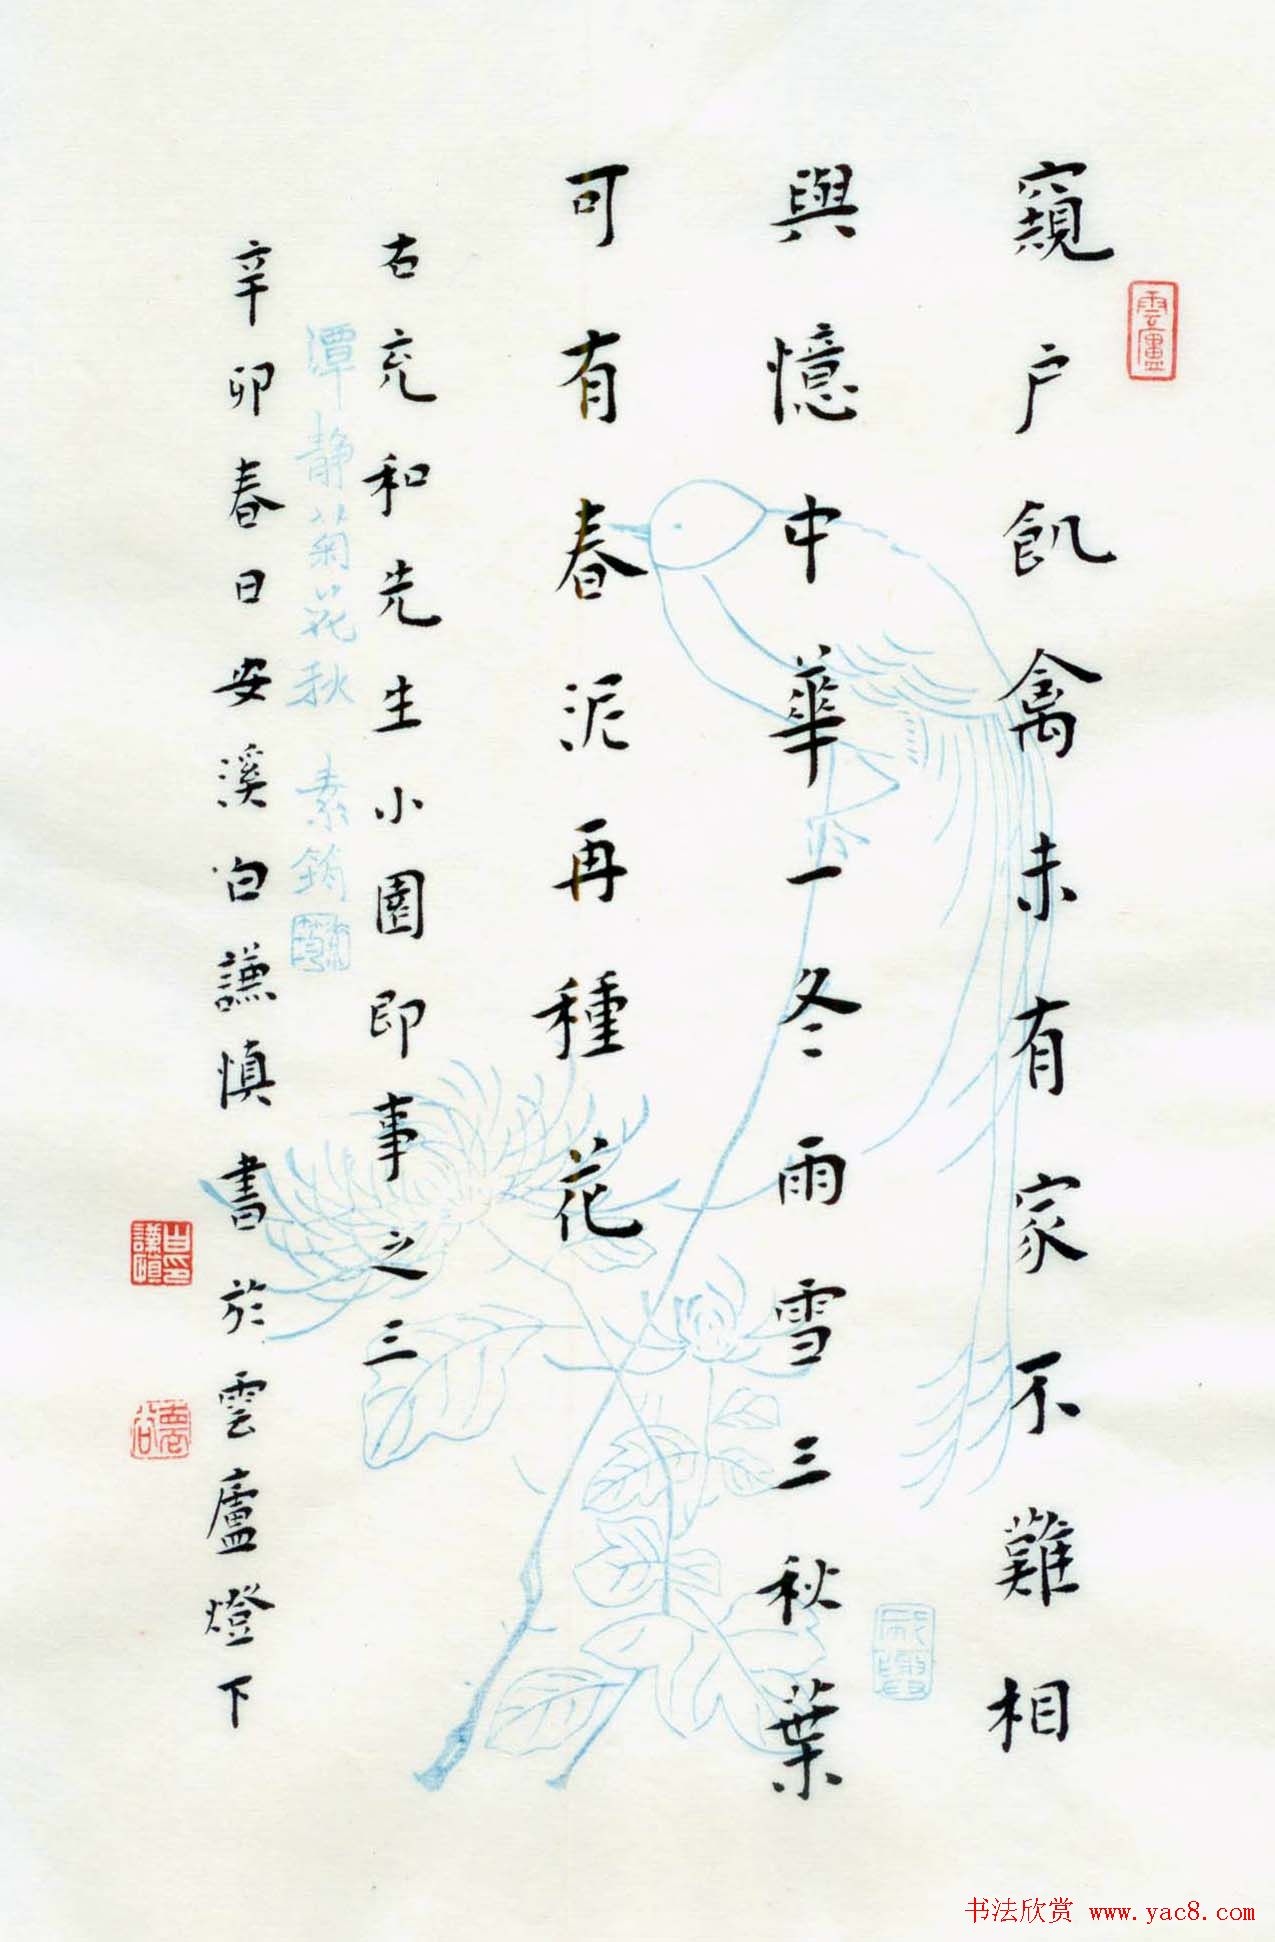 窺户飢禽未有家不難相
與憶中華一冬雨雪三秋葉
可有春泥再種花
右充和先生小園即事之三
潭靜菊花秋 素筠
辛卯春日安溪白謙慎書於雲廬燈下
雲廬
白謙慎印
书法欣赏 www.yac8.com